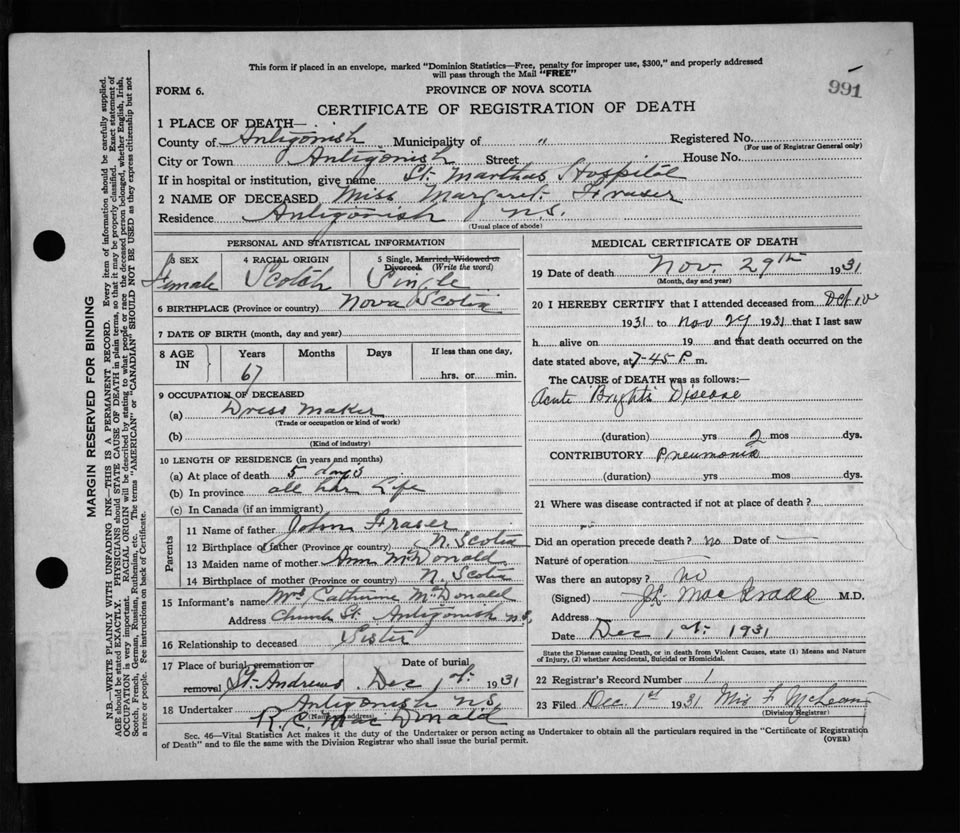 This form if placed in an envelope, marked "Dominion Statistics—Free, penalty for improper use, $300," and properly addressed
will pass through the Mail "FREE"
991
FORM 6.
PROVINCE OF NOVA SCOTIA
CERTIFICATE OF REGISTRATION OF DEATH
1 PLACE OF DEATH—
County of Antigonish Municipality of " Registered No.
(For use of Registrar General only)
City or Town Antigonish Street House No.
If in hospital or institution, give name St. Marthas Hospital
2 NAME OF DECEASED Miss Margaret Fraser
Residence Antigonish N.S.
(Usual place of abode)
PERSONAL AND STATISTICAL INFORMATION
3 SEX Female
4 RACIAL ORIGIN Scotch
5 Single, Married, Widowed or Divorced (Write the word) Single
6 BIRTHPLACE (Province or country) Nova Scotia
7 DATE OF BIRTH (month, day and year)
8 AGE IN Years Months Days If less than one day,
67 hrs. or min.
9 OCCUPATION OF DECEASED
(a) Dress Maker
(Trade or occupation or kind of work)
(b)
(Kind of industry)
10 LENGTH OF RESIDENCE (in years and months)
(a) At place of death 5 days
(b) In province all her Life
(c) In Canada (if an immigrant)
Parents
11 Name of father John Fraser
12 Birthplace of father (Province or country) N. Scotia
13 Maiden name of mother Ann McDonald
14 Birthplace of mother (Province or country) N. Scotia
15 Informant's name Mrs. Catherine McDonald
Address Church St. Antigonish N.S.
16 Relationship to deceased Sister
17 Place of burial, cremation or removal St. Andrews Date of burial Dec 1st. 1931
18 Undertaker Antigonish N.S.
(Name and address)
R. C. MacDonald
MEDICAL CERTIFICATE OF DEATH
19 Date of death Nov. 29th 1931
(Month, day and year)
20 I HEREBY CERTIFY that I attended deceased from Oct 10
1931 to Nov 29 1931 that I last saw
h alive on 19 and that death occurred on the
date stated above, at 7-45 P. m.
The CAUSE of DEATH was as follows:—
Acute Bright's Disease
(duration) yrs 2 mos dys.
CONTRIBUTORY Pneumonia
(duration) yrs mos dys.
21 Where was disease contracted if not at place of death?
Did an operation precede death? no Date of —
Nature of operation —
Was there an autopsy? no
(Signed) M.D.
Address
Date Dec 1st. 1931
State the Disease causing Death, or in death from Violent Causes, state (1) Means and Nature
of Injury, (2) whether Accidental, Suicidal or Homicidal.
22 Registrar's Record Number 1
23 Filed Dec 1st 1931 F McLean
(Division Registrar)
Sec. 46—Vital Statistics Act makes it the duty of the Undertaker or person acting as Undertaker to obtain all the particulars required in the "Certificate of Registration
of Death" and to file the same with the Division Registrar who shall issue the burial permit.
(OVER)
MARGIN RESERVED FOR BINDING
N.B.—WRITE PLAINLY WITH UNFADING INK—THIS IS A PERMANENT RECORD. Every item of information should be carefully supplied.
AGE should be stated EXACTLY. PHYSICIANS should STATE CAUSE OF DEATH in plain terms, so that it may be properly classified. Exact statement of
OCCUPATION is very important. RACIAL ORIGIN will be described by stating to what people or race the deceased person belonged, whether English, Irish,
Scotch, French, German, Russian, Ruthenian, etc. The terms "AMERICAN" or "CANADIAN" SHOULD NOT BE USED as they express citizenship but not
a race or people. See instructions on back of Certificate.